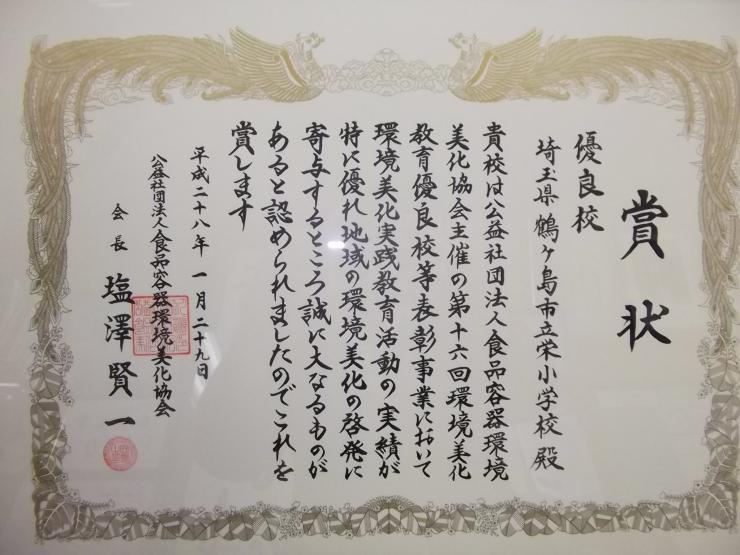 賞状
優良校
埼玉県鶴ヶ島市立栄小学校殿
貴校は公益社団法人食品容器環境
美化協会主催の第十六回環境美化
教育優良校等表彰事業において
環境美化実践教育活動の実績が
特に優れ地域の環境美化の啓発に
寄与するところ誠に大なるものが
あると認められましたのでこれを
賞します
平成二十八年一月二十九日
公益社団法人食品容器環境美化協会
会長 塩澤賢一